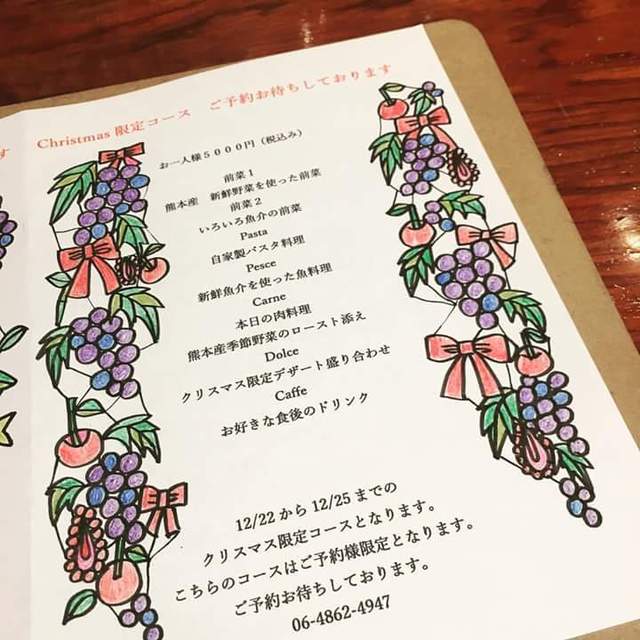 す
Christmas 限定コース　ご予約お待ちしております
お一人様５０００円（税込み）
前菜１
熊本産　新鮮野菜を使った前菜
前菜２
いろいろ魚介の前菜
Pasta
自家製パスタ料理
Pesce
新鮮魚介を使った魚料理
Carne
本日の肉料理
熊本産季節野菜のロースト添え
Dolce
クリスマス限定デザート盛り合わせ
Caffe
お好きな食後のドリンク
12/22 から 12/25 までの
クリスマス限定コースとなります。
こちらのコースはご予約様限定となります。
ご予約お待ちしております。
06-4862-4947